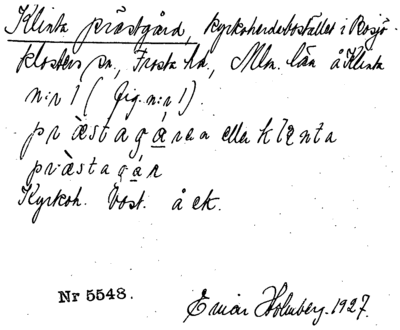 Klinta prästgård, kyrkoherdebostället i Bosjö-
klosters sn, Frosta hd, Mlm. län å Klinta
n:r 1 (fig. n:r 1).
pràstagá̱ren eller klenta
pràstagá̱r
Kyrkoh. bost. å ek.
Nr 5548. Einar Holmberg. 1927.